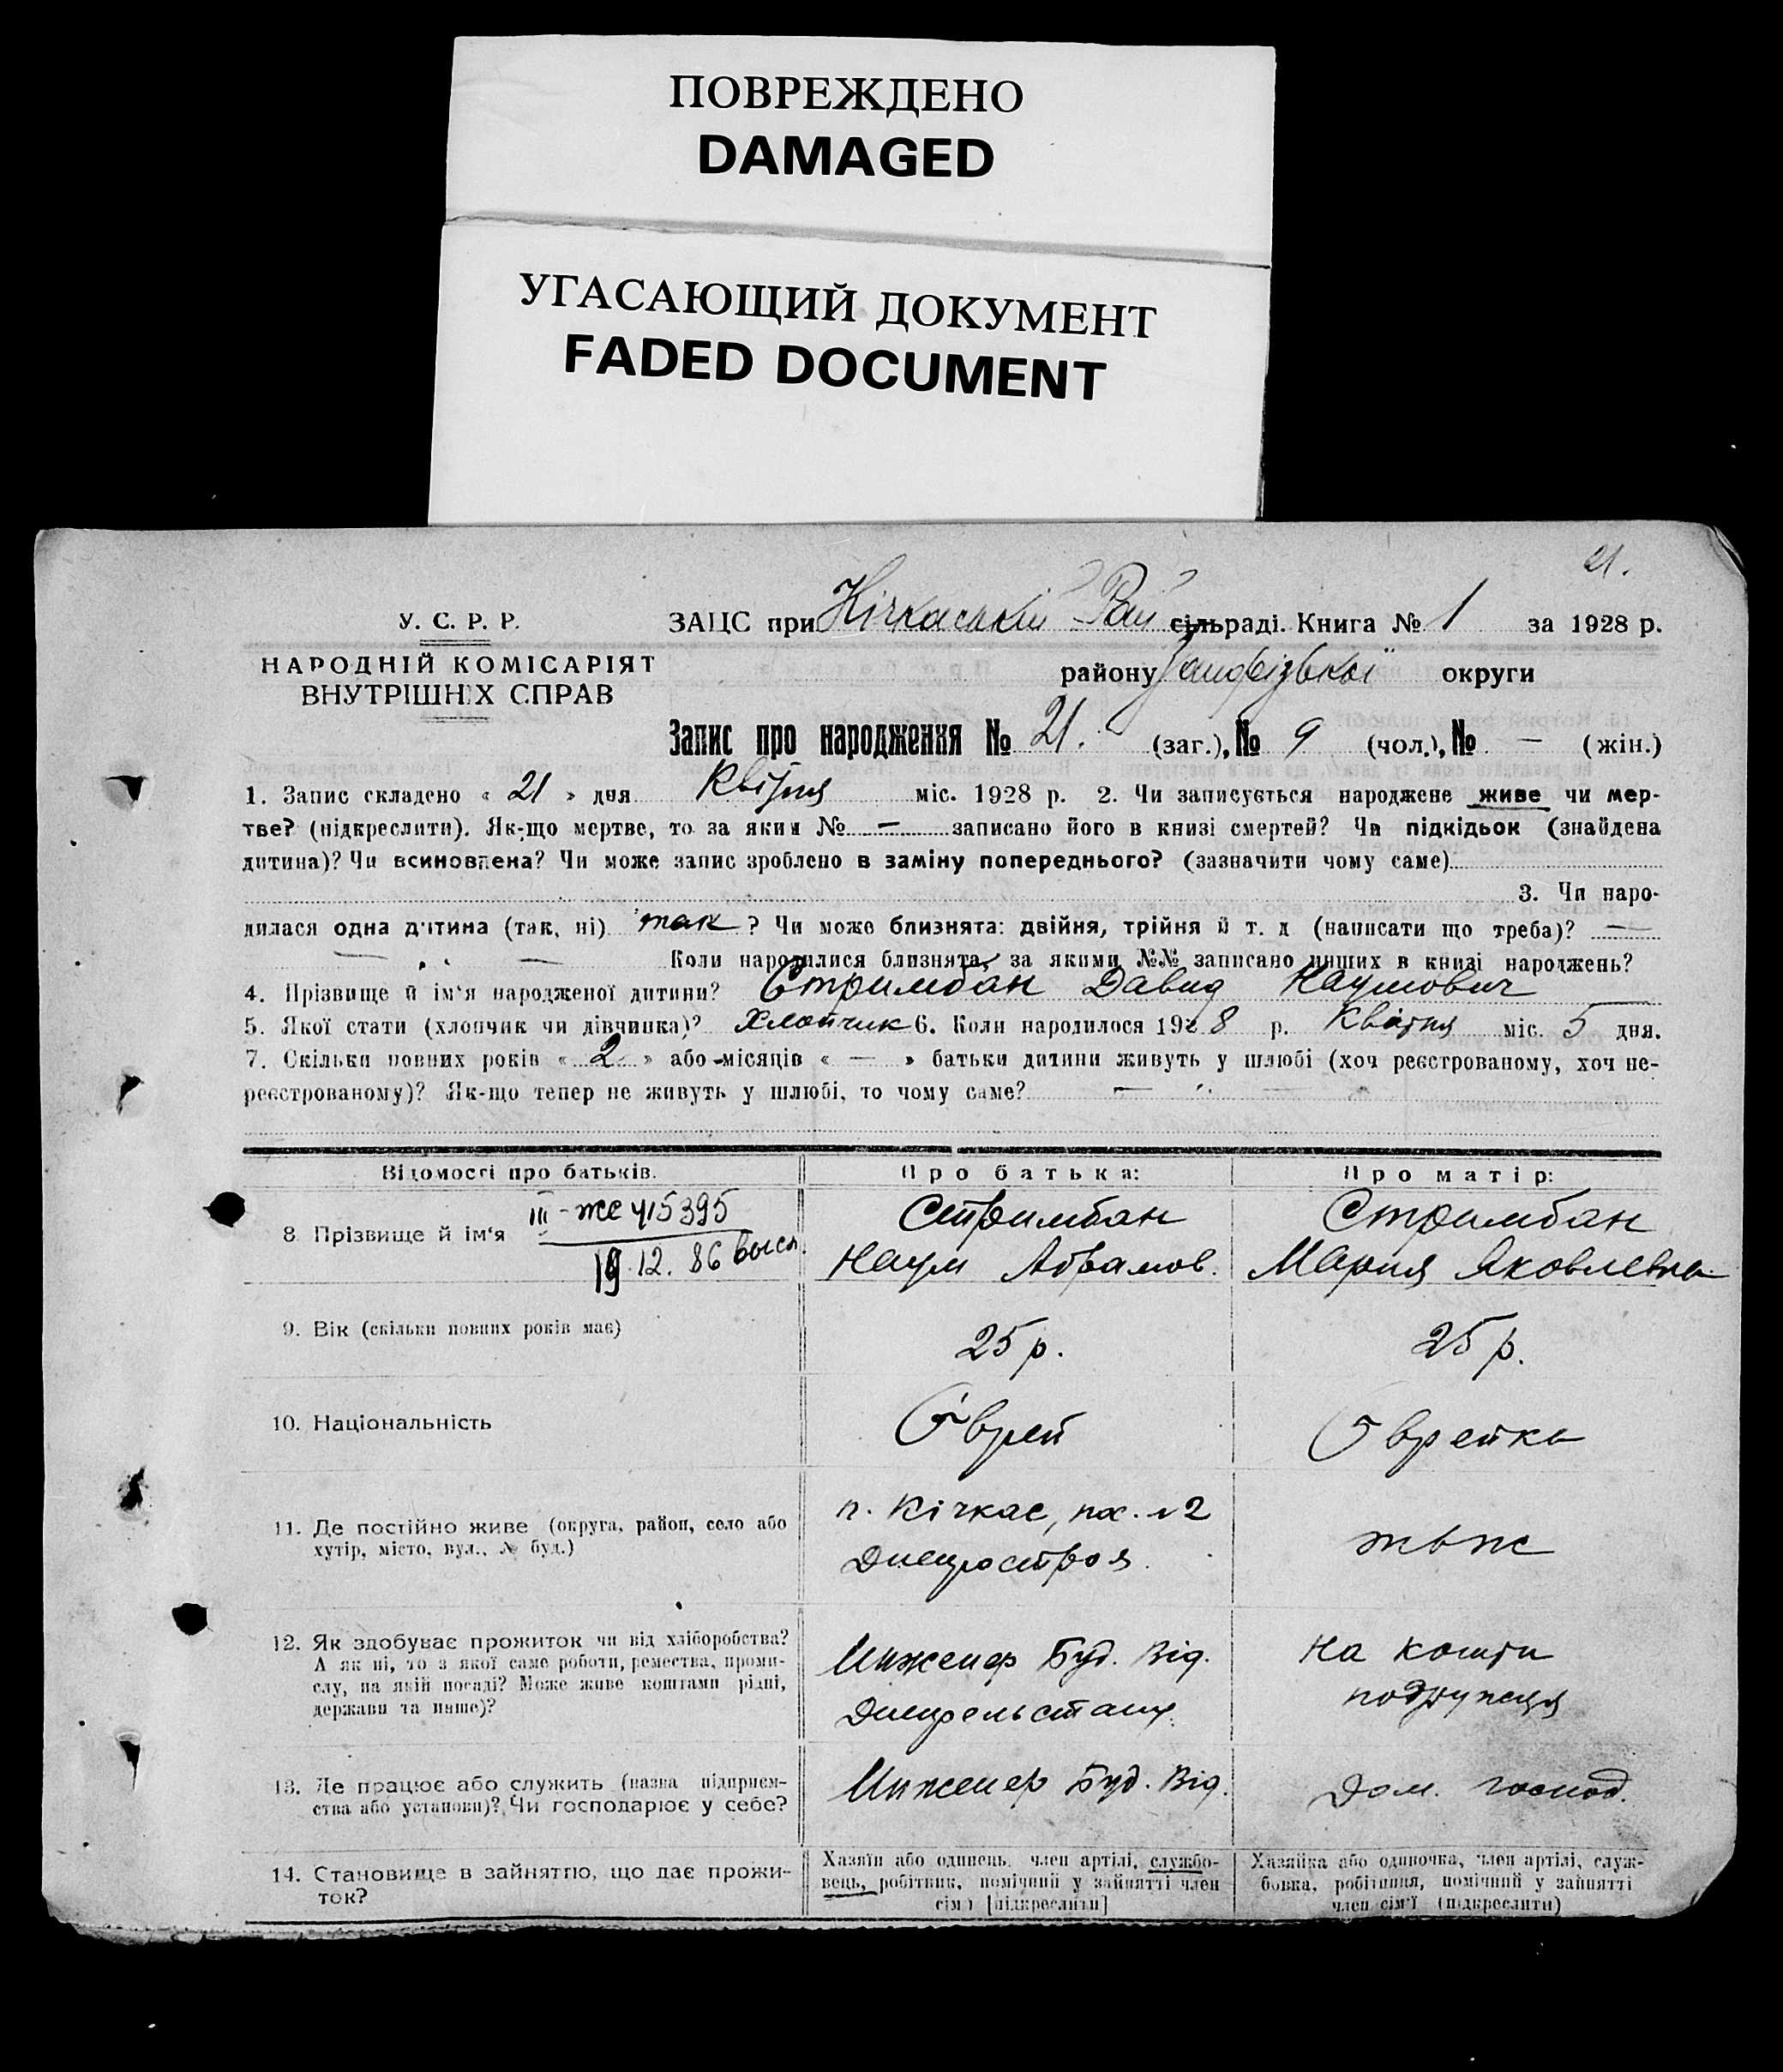 ПОВРЕЖДЕНО
DAMAGED
УГАСАЮЩИЙ ДОКУМЕНТ
FADED DOCUMENT
21.
У. С. Р. Р.
НАРОДНІЙ КОМІСАРІЯТ
ВНУТРІШНІХ СПРАВ
ЗАЦС при Кічкаській Рай сільраді. Книга № 1 за 1928 р.
району Запорізької округи
Запис про народження № 21. (заг.), № 9 (чол.), № — (жін.)
1. Запис складено « 21 » дня Квітня міс. 1928 р. 2. Чи записується народжене живе чи мер-
тве? (підкреслити). Як-що мертве, то за яким № — записано його в книзі смертей? Чи підкідьок (знайдена
дитина)? Чи всиновлена? Чи може запис зроблено в заміну попереднього? (зазначити чому саме)
3. Чи наро-
дилася одна дитина (так, ні) так ? Чи може близнята: двійня, трійня й т. д (написати що треба)? —
— — Коли народилися близнята, за якими №№ записано инших в книзі народжень?
4. Прізвище й ім'я народженої дитини? Стримбан Давид Наумович
5. Якої стати (хлопчик чи дівчинка)? Хлопчик 6. Коли народилося 1928 р. Квітня міс. 5 дня.
7. Скільки повних років « 2 » або місяців « — » батьки дитини живуть у шлюбі (хоч реєстрованому, хоч не-
реєстрованому)? Як-що тепер не живуть у шлюбі, то чому саме? — —
Відомості про батьків. Про батька: Про матір:
8 Прізвище й ім'я III - же 415395
19.12.86 высл.
Стримбан
Наум Абрамов.
Стримбан
Мария Яковлевна
9. Вік (скільки повних років має) 25 р. 25 р.
10. Національність Єврей Єврейка
11. Де постійно живе (округа, район, село або
хутір, місто, вул., № буд.)
п. Кічкас, пос. №2
Днепростроя.
12. Як здобуває прожиток чи від хліборобства?
А як ні, то з якої саме роботи, ремества, проми-
слу, на якій посаді? Може живе коштами рідні,
держави та инше)?
Инженер Буд. Від.
Днепрельстану.
На кошти
подружця
13. Де працює або служить (назва підприєм-
ства або установи)? Чи господарює у себе?
Инженер Буд. Від.
Дом. господ.
14. Становище в зайняттю, що дає прожи-
ток?
Хазяїн або одинець, член артілі, службо-
вець, робітник, помічний у зайнятті член
сім'ї [підкреслити]
Хазяйка або одиночка, член артілі, служ-
бовка, робітниця, помічний у зайнятті
член сім'ї (підкреслити)